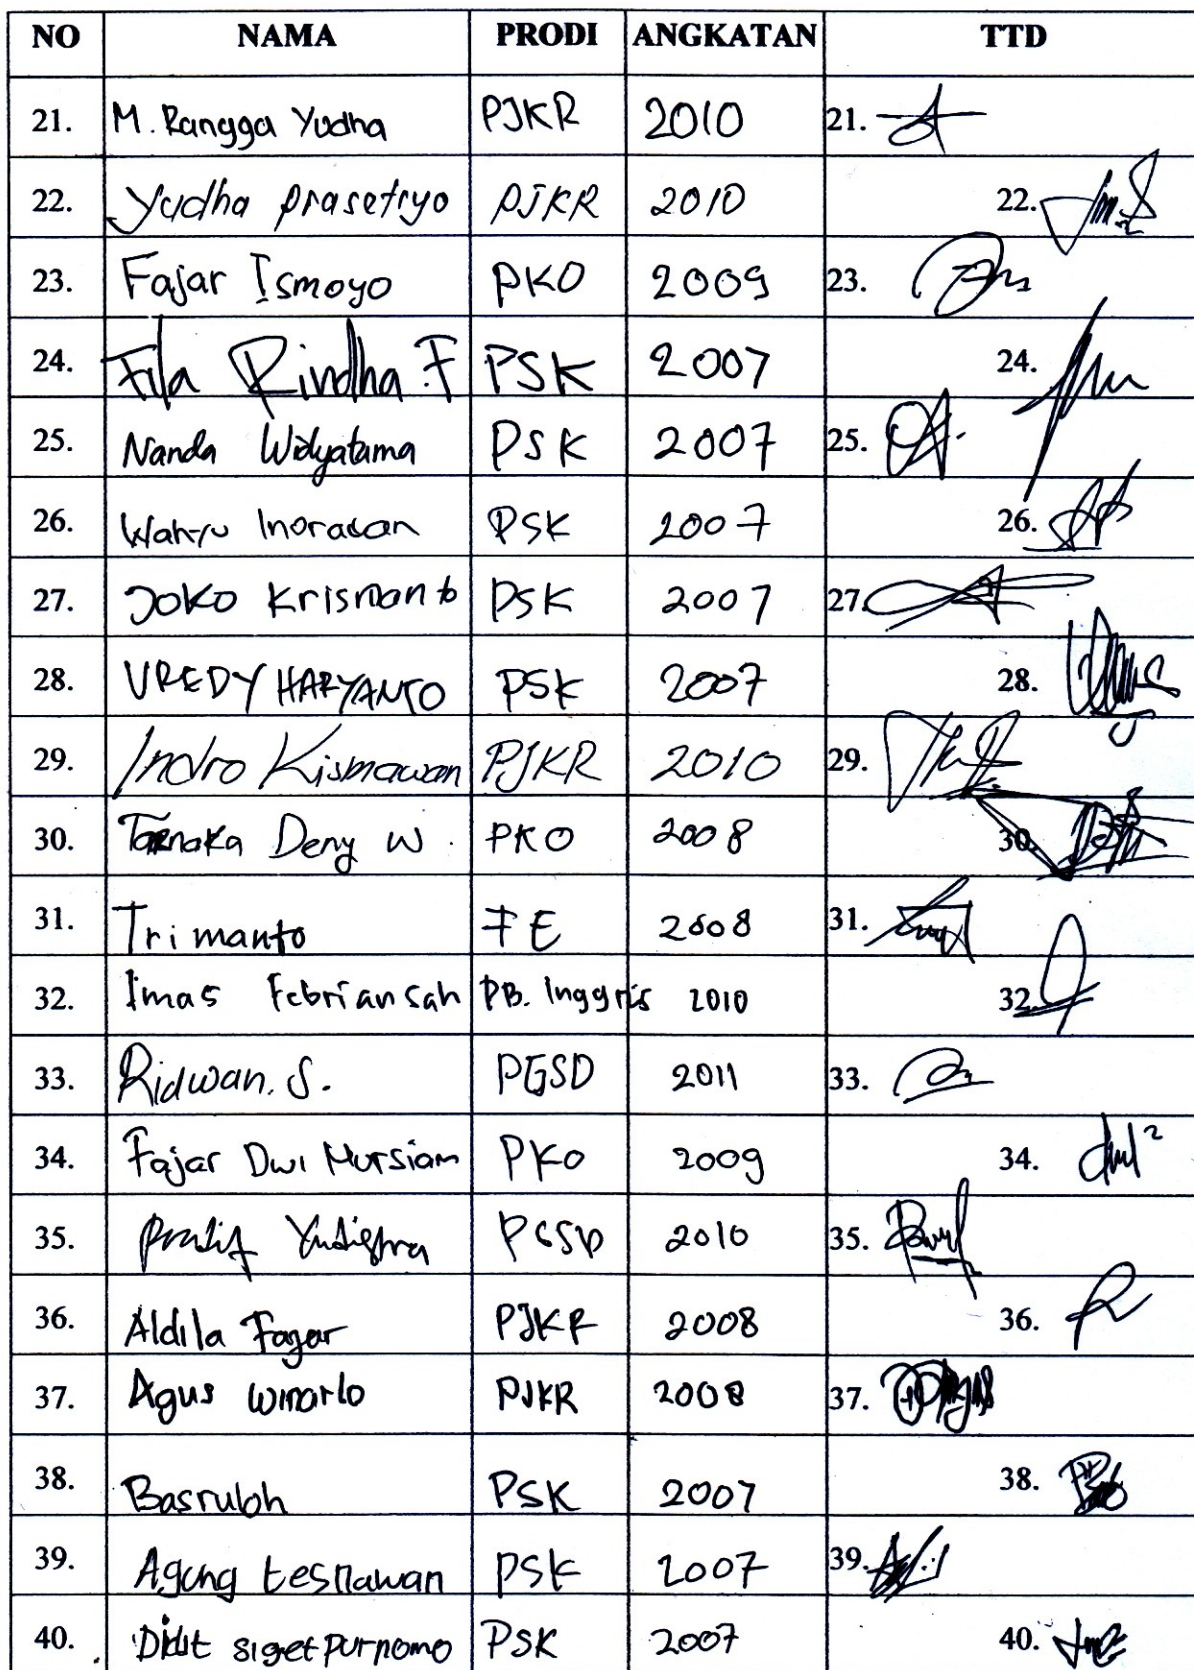 NO NAMA PRODI ANGKATAN TTD
21. M. Rangga Yudha PJKR 2010 21.
22. Yudha prasetiyo PJKR 2010 22.
23. Fajar Ismoyo PKO 2009 23.
24. Fila Rindha . F PSK 2007 24.
25. Nanda Widyatama PSK 2007 25.
26. PSK 2007 26.
27. Joko Krismanto PSK 2007 27.
28. VREDY HARYANTO PSK 2007 28.
29. Indro Kismawan PJKR 2010 29.
30. Deny W. PKO 2008 30.
31. Tri manto FE 2008 31.
32. Imas Febriansah PB. Inggris 2010 32.
33. Ridwan. S. PGSD 2011 33.
34. Fajar Dwi Mursiam PKO 2009 34.
35. PGSD 2010 35.
36. Aldila Fajar PJKR 2008 36.
37. Agus Winarto PJKR 2008 37.
38. Basruloh PSK 2007 38.
39. Agung PSK 2007 39.
40. Didit siget purnomo PSK 2007 40.